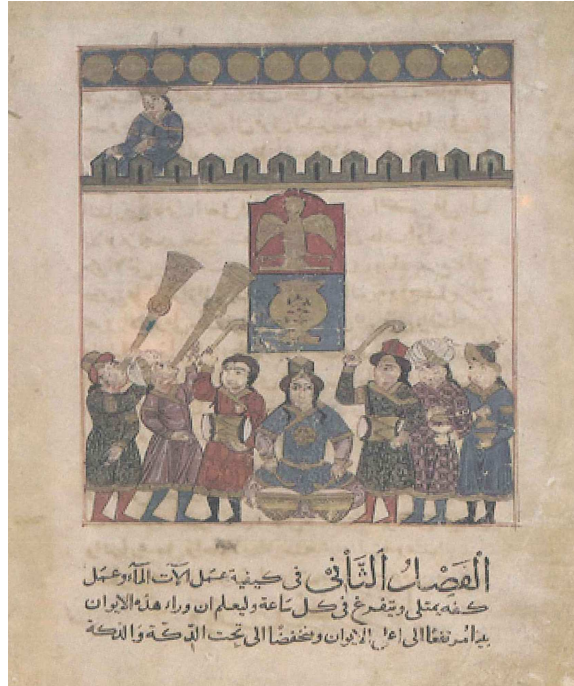 الفصل الثاني في كيفية عمل الآت الماء وعمل
كفه يمتلى ويتفرغ في كل ساعة وليعلم ان وراء هذه الايوان
بيتا مرتفعا الى اعلى الايوان ومنخفضا الى تحت الدكة والدكة